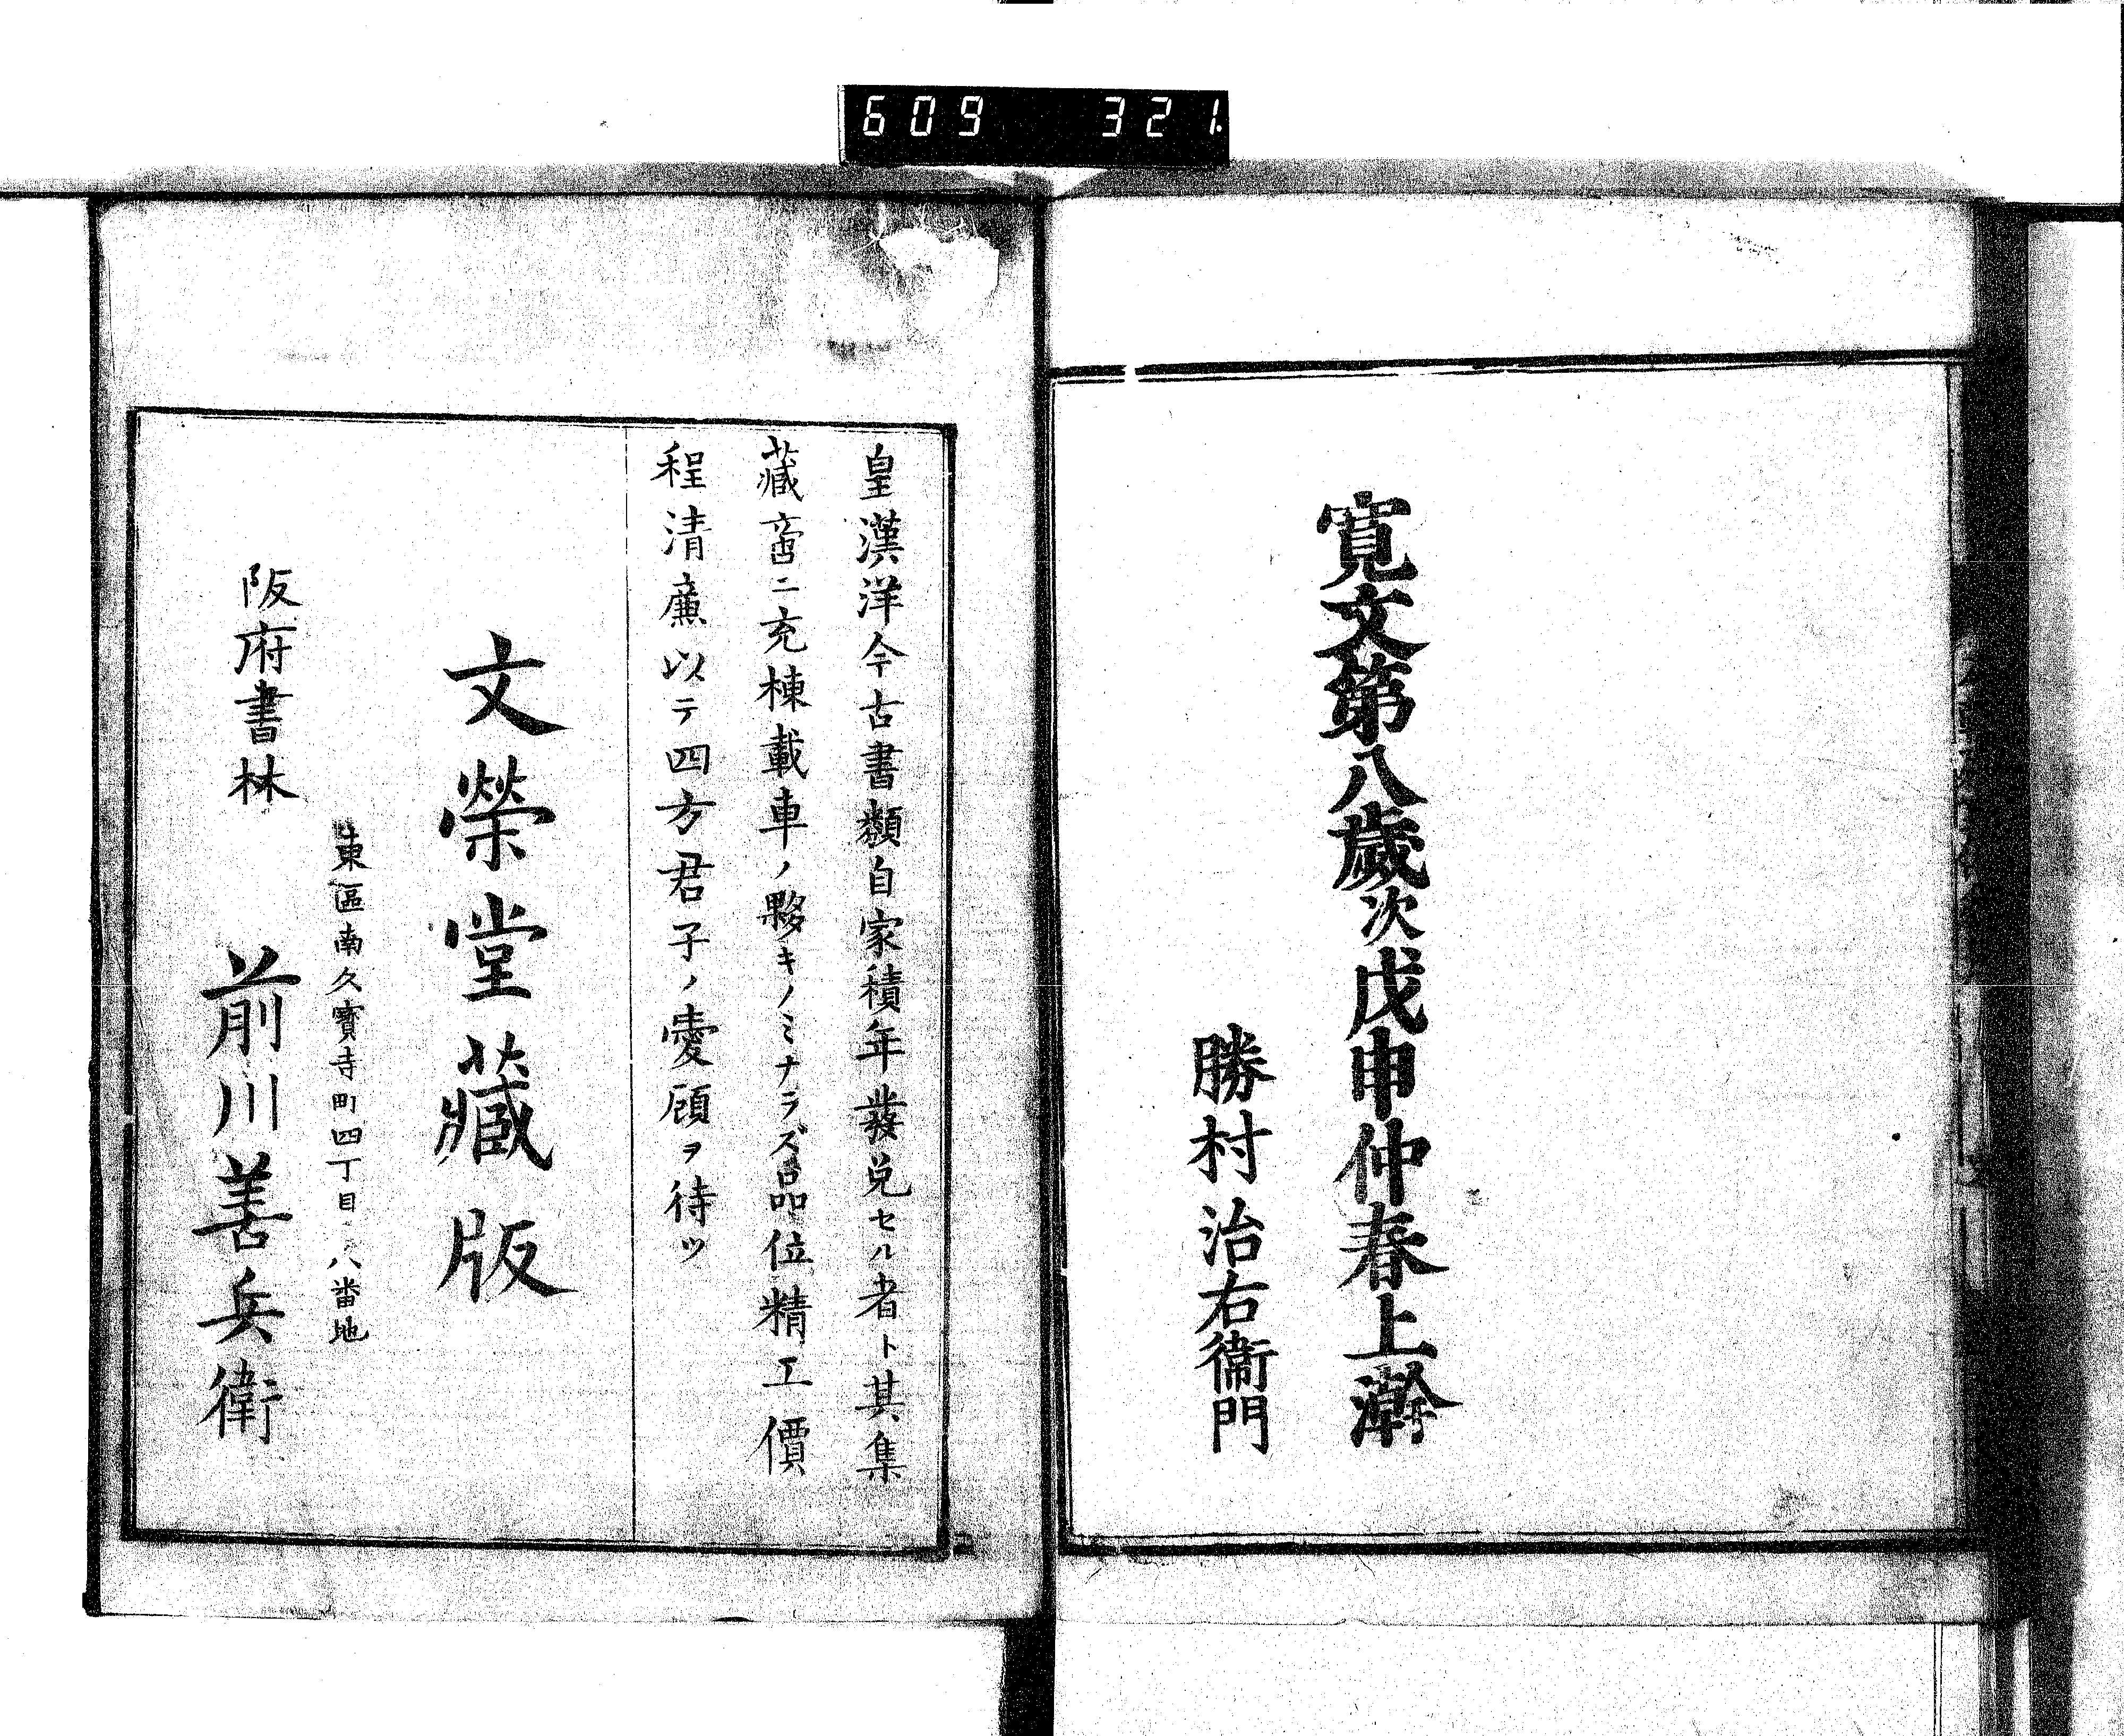 609 321.
寛文第八歲次戊申仲春上澣
勝村治右衞門
皇漢洋今古書類自家積年發兌セル者ト其集
藏啻ニ充棟載車ノ夥キノミナラズ品位精工價
程清廉以テ四方君子ノ愛顧ヲ待ツ
文榮堂藏版
東區南久寶寺町四丁目八番地
阪府書林 前川善兵衛